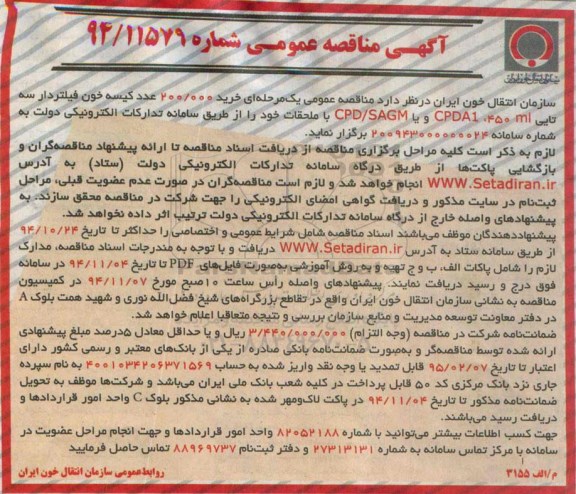 آگهی مناقصه عمومی شماره ۹۴/۱۱۵۷۹
سازمان انتقال خون ایران درنظر دارد مناقصه عمومی یک‌مرحله‌ای خرید ۲۰۰/۰۰۰ عدد کیسه خون فیلتردار سه
تایی CPDA1 ،۴۵۰ ml و یا CPD/SAGM با ملحقات خود را از طریق سامانه تدارکات الکترونیکی دولت به
شماره سامانه ۲۰۰۹۴۳۰۰۰۰۰۰۰۲۴ برگزار نماید.
لازم به ذکر است کلیه مراحل برگزاری مناقصه از دریافت اسناد مناقصه تا ارائه پیشنهاد مناقصه‌گران و
بازگشایی پاکت‌ها از طریق درگاه سامانه تدارکات الکترونیکی دولت (ستاد) به آدرس
WWW.Setadiran.ir انجام خواهد شد و لازم است مناقصه‌گران در صورت عدم عضویت قبلی، مراحل
ثبت‌نام در سایت مذکور و دریافت گواهی امضای الکترونیکی را جهت شرکت در مناقصه محقق سازند. به
پیشنهادهای واصله خارج از درگاه سامانه تدارکات الکترونیکی دولت ترتیب اثر داده نخواهد شد.
پیشنهاددهندگان موظف می‌باشند اسناد مناقصه شامل شرایط عمومی و اختصاصی را حداکثر تا تاریخ ۹۴/۱۰/۲۴
از طریق سامانه ستاد به آدرس WWW.Setadiran.ir دریافت و با توجه به مندرجات اسناد مناقصه، مدارک
لازم را شامل پاکات الف، ب و ج تهیه و به روش آموزشی به‌صورت فایل‌های PDF تا تاریخ ۹۴/۱۱/۰۴ در سامانه
فوق درج و رسید دریافت نمایند. پیشنهادهای واصله رأس ساعت ۱۰صبح مورخ ۹۴/۱۱/۰۷ در کمیسیون
مناقصه به نشانی سازمان انتقال خون ایران واقع در تقاطع بزرگراه‌های شیخ فضل‌الله نوری و شهید همت بلوک A
در دفتر معاونت توسعه مدیریت و منابع سازمان بررسی و نتیجه متعاقبا اعلام خواهد شد.
ضمانت‌نامه شرکت در مناقصه (وجه التزام) ۳/۴۴۰/۰۰۰/۰۰۰ ریال و یا حداقل معادل ۵درصد مبلغ پیشنهادی
ارائه شده توسط مناقصه‌گر و به‌صورت ضمانت‌نامه بانکی صادره از یکی از بانک‌های معتبر و رسمی کشور دارای
اعتبار تا تاریخ ۹۵/۰۲/۰۷ قابل تمدید یا وجه نقد واریز شده به حساب ۴۰۰۱۰۳۴۲۰۶۳۷۱۵۶۹ به نام سپرده
جاری نزد بانک مرکزی کد ۵۰ قابل پرداخت در کلیه شعب بانک ملی ایران می‌باشد و شرکت‌ها موظف به تحویل
ضمانت‌نامه مذکور تا تاریخ ۹۴/۱۱/۰۴ در پاکت لاک‌ومهر شده به نشانی مذکور بلوک C واحد امور قراردادها و
دریافت رسید می‌باشند.
جهت کسب اطلاعات بیشتر می‌توانید با شماره ۸۲۰۵۲۱۸۸ واحد امور قراردادها و جهت انجام مراحل عضویت در
سامانه با مرکز تماس سامانه به شماره ۲۷۳۱۳۱۳۱ و دفتر ثبت‌نام ۸۸۹۶۹۷۳۷ تماس حاصل فرمایید
م/الف ۳۱۵۵ روابط‌عمومی سازمان انتقال خون ایران